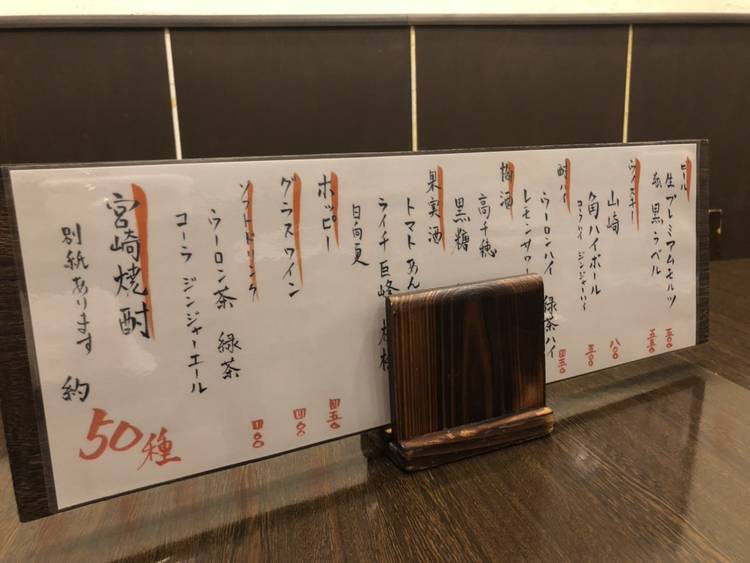 ビール
生プレミアムモルツ 五五〇
黒ラベル 五五〇
ウイスキー
山崎 八〇〇
角ハイボール 五〇〇
コークハイ ジンジャーハイ
酎ハイ
ウーロンハイ 緑茶ハイ 四五〇
レモンサワー
梅酒
高千穂
黒糖
果実酒
トマト あん
ライチ 巨峰
日向夏
ホッピー 四五〇
グラスワイン 四〇〇
ソフトドリンク
ウーロン茶 緑茶
コーラ ジンジャーエール
宮崎焼酎
別紙あります 約
50種